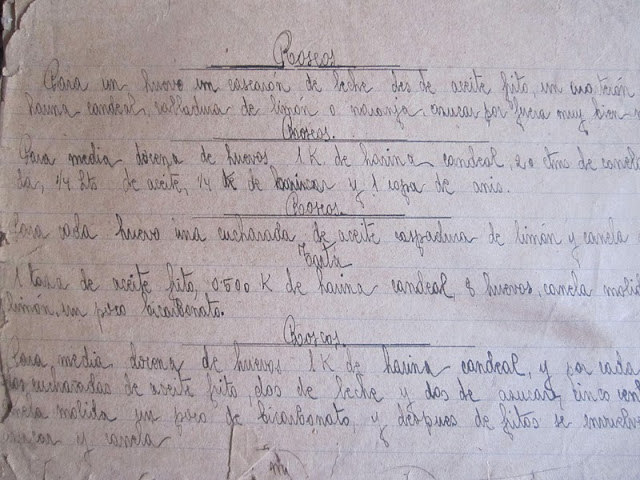 Roscos
Para un huevo un cascarón de leche dos de aceite frito, un cuarterón
harina candeal, ralladura de limón o naranja. azucar por fuera muy bien
Roscos.
Para media docena de huevos 1 K de harina candeal, 20 ctms de canela
da, 1/4 lts de aceite, 1/4 K de azucar y 1 copa de anis.
Roscos.
Para cada huevo una cucharada de aceite raspadura de limón y canela
1 taza de aceite frito, 0'500 K de harina candeal, 8 huevos, canela molid
limón, un poco bicarbonato.
Roscos
Para media docena de huevos 1 K de harina candeal, y por cada
dos cucharadas de aceite frito, dos de leche y dos de azucar, cinco cen
nela molida un poco de bicarbonato, y despues de fritos se envuelve
azucar y canela